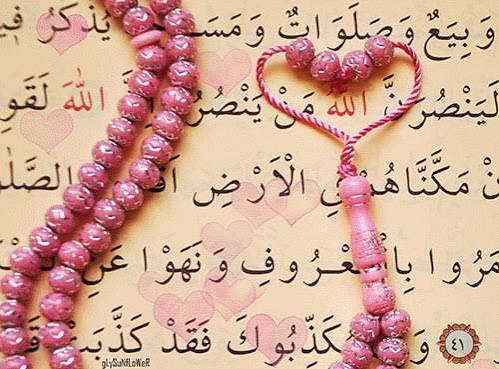 وَبِيَعٌ وَصَلَوَاتٌ وَمَسَـ يُذْكَرُ فِيـ
لَيَنْصُرَنَّ اللّٰهُ مَنْ يَنْصُرُ اللّٰهَ لَقَوِ
نْ مَكَّنَّاهُمْ فِي الْاَرْضِ اَقَا الصَّلٰو
مَرُوا بِالْمَعْرُوفِ وَنَهَوْا عَنِ الْمُنْكَ
٤١ وَاِنْ يُكَذِّبُوكَ فَقَدْ كَذَّبَتْ قَ
gLySuNFLoWeR